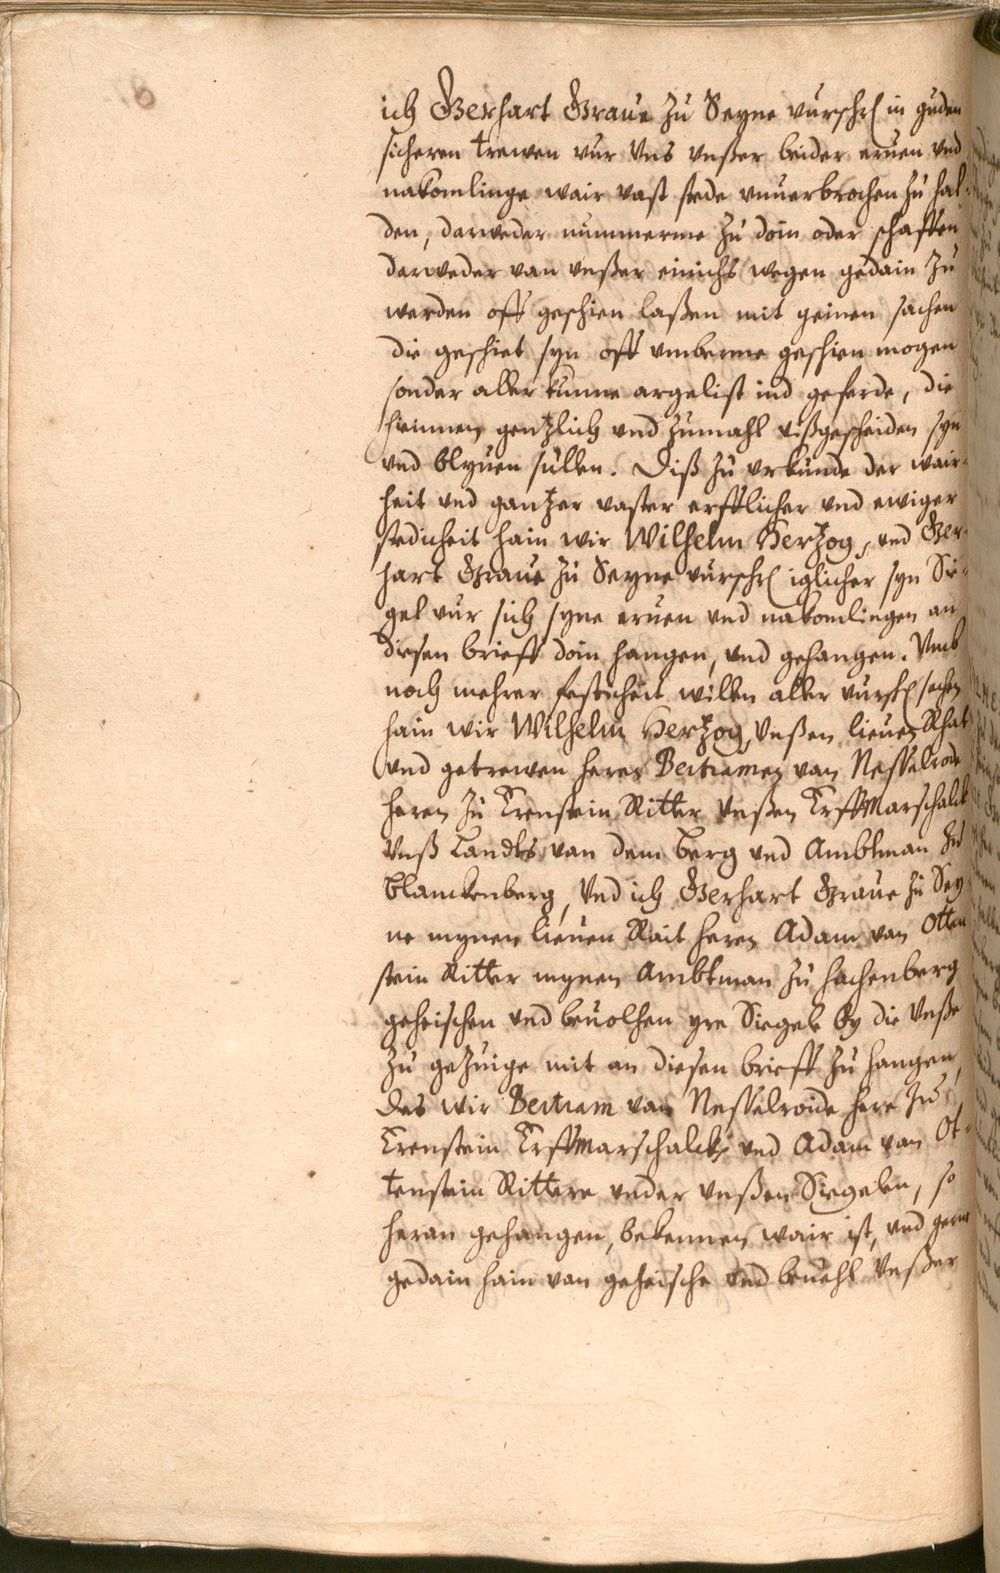 ich Gerhart Graue zu Seyne vurschr in guden
sicheren trewen vur Vns vnßer beider eruen vnd
nakomlinge wair vast stede vnuerbrochen zu hal-
den, darweder nummerme zu doin oder schaffen
darweder van vnßer einichs wegen gedain zu
werden off geschien laßen mit geinen sachen
die geschiet syn off vmberme geschien mogen
sonder aller kunne argelist ind geferde, die
hirinnen gentzlich vnd zumahl vißgescheiden syn
vnd blyuen sullen. Diß zu vrkunde der wair-
heit vnd gantzer vaster erfflicher vnd ewiger
stedicheit hain wir Wilhelm Hertzog, vnd Ger-
hart Graue zu Seyne vurschr iglicher syn Sie-
gel vur sich syne eruen vnd nakomlingen an
diesen brieff doin hangen, vnd gehangen. Vmb
noch mehrer festicheit willen aller vurschr sachen
hain wir Wilhelm Hertzog, Vnßen lieuen Rhat
vnd getrewen heren Bertramen van Nesselrode
heren zu Erenstein Ritter Vnßen Erffmarschalck
Vnß Landts van dem Berg vnd Ambtman zu
Blanckenberg, Vnd ich Gerhart Graue zu Sey-
ne mynen lieuen Rait heren Adam van Otten-
stein Ritter mynen Ambtman zu Hachenberg
geheischen vnd beuolhen yre Siegele by die Vnße
zu gezuige mit an diesen brieff zu hangen,
Des wir Bertram van Nesselroide here zu
Erenstein Erffmarschalck, vnd Adam van Ot-
tenstein Rittere vnder vnßen Siegelen, so
heran gehangen, bekennen wair ist, vnd gerne
gedain hain van geheische vnd beuehl Vnßer